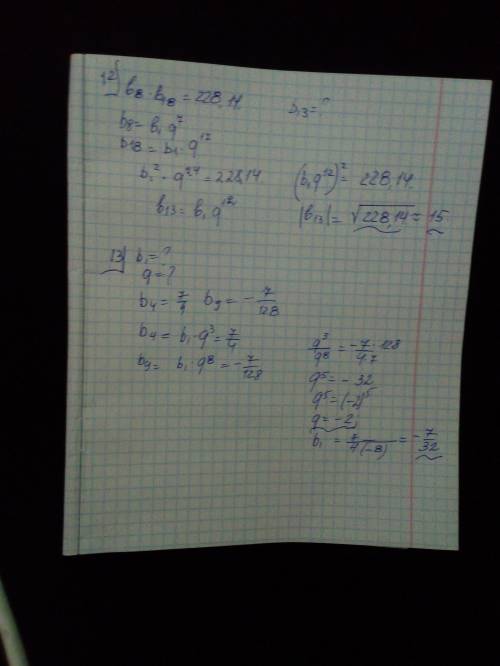 12) b8 · b18 = 228,14   b13 = ?
b8 = b1 q^7
b18 = b1 · q^17
b1^2 · q^24 = 228,14   (b1 q^12)^2 = 228,14
b13 = b1 q^12   |b13| = √228,14 ≈ 15
13) b1 = ?
q = ?
b4 = 7/4   b9 = -7/128
b4 = b1 · q^3 = 7/4   q^3/q^8 = -7/4·7 · 128
b9 = b1 · q^8 = -7/128   q^5 = -32
q^5 = (-2)^5
q = -2
b1 = 7/4(-8) = -7/32